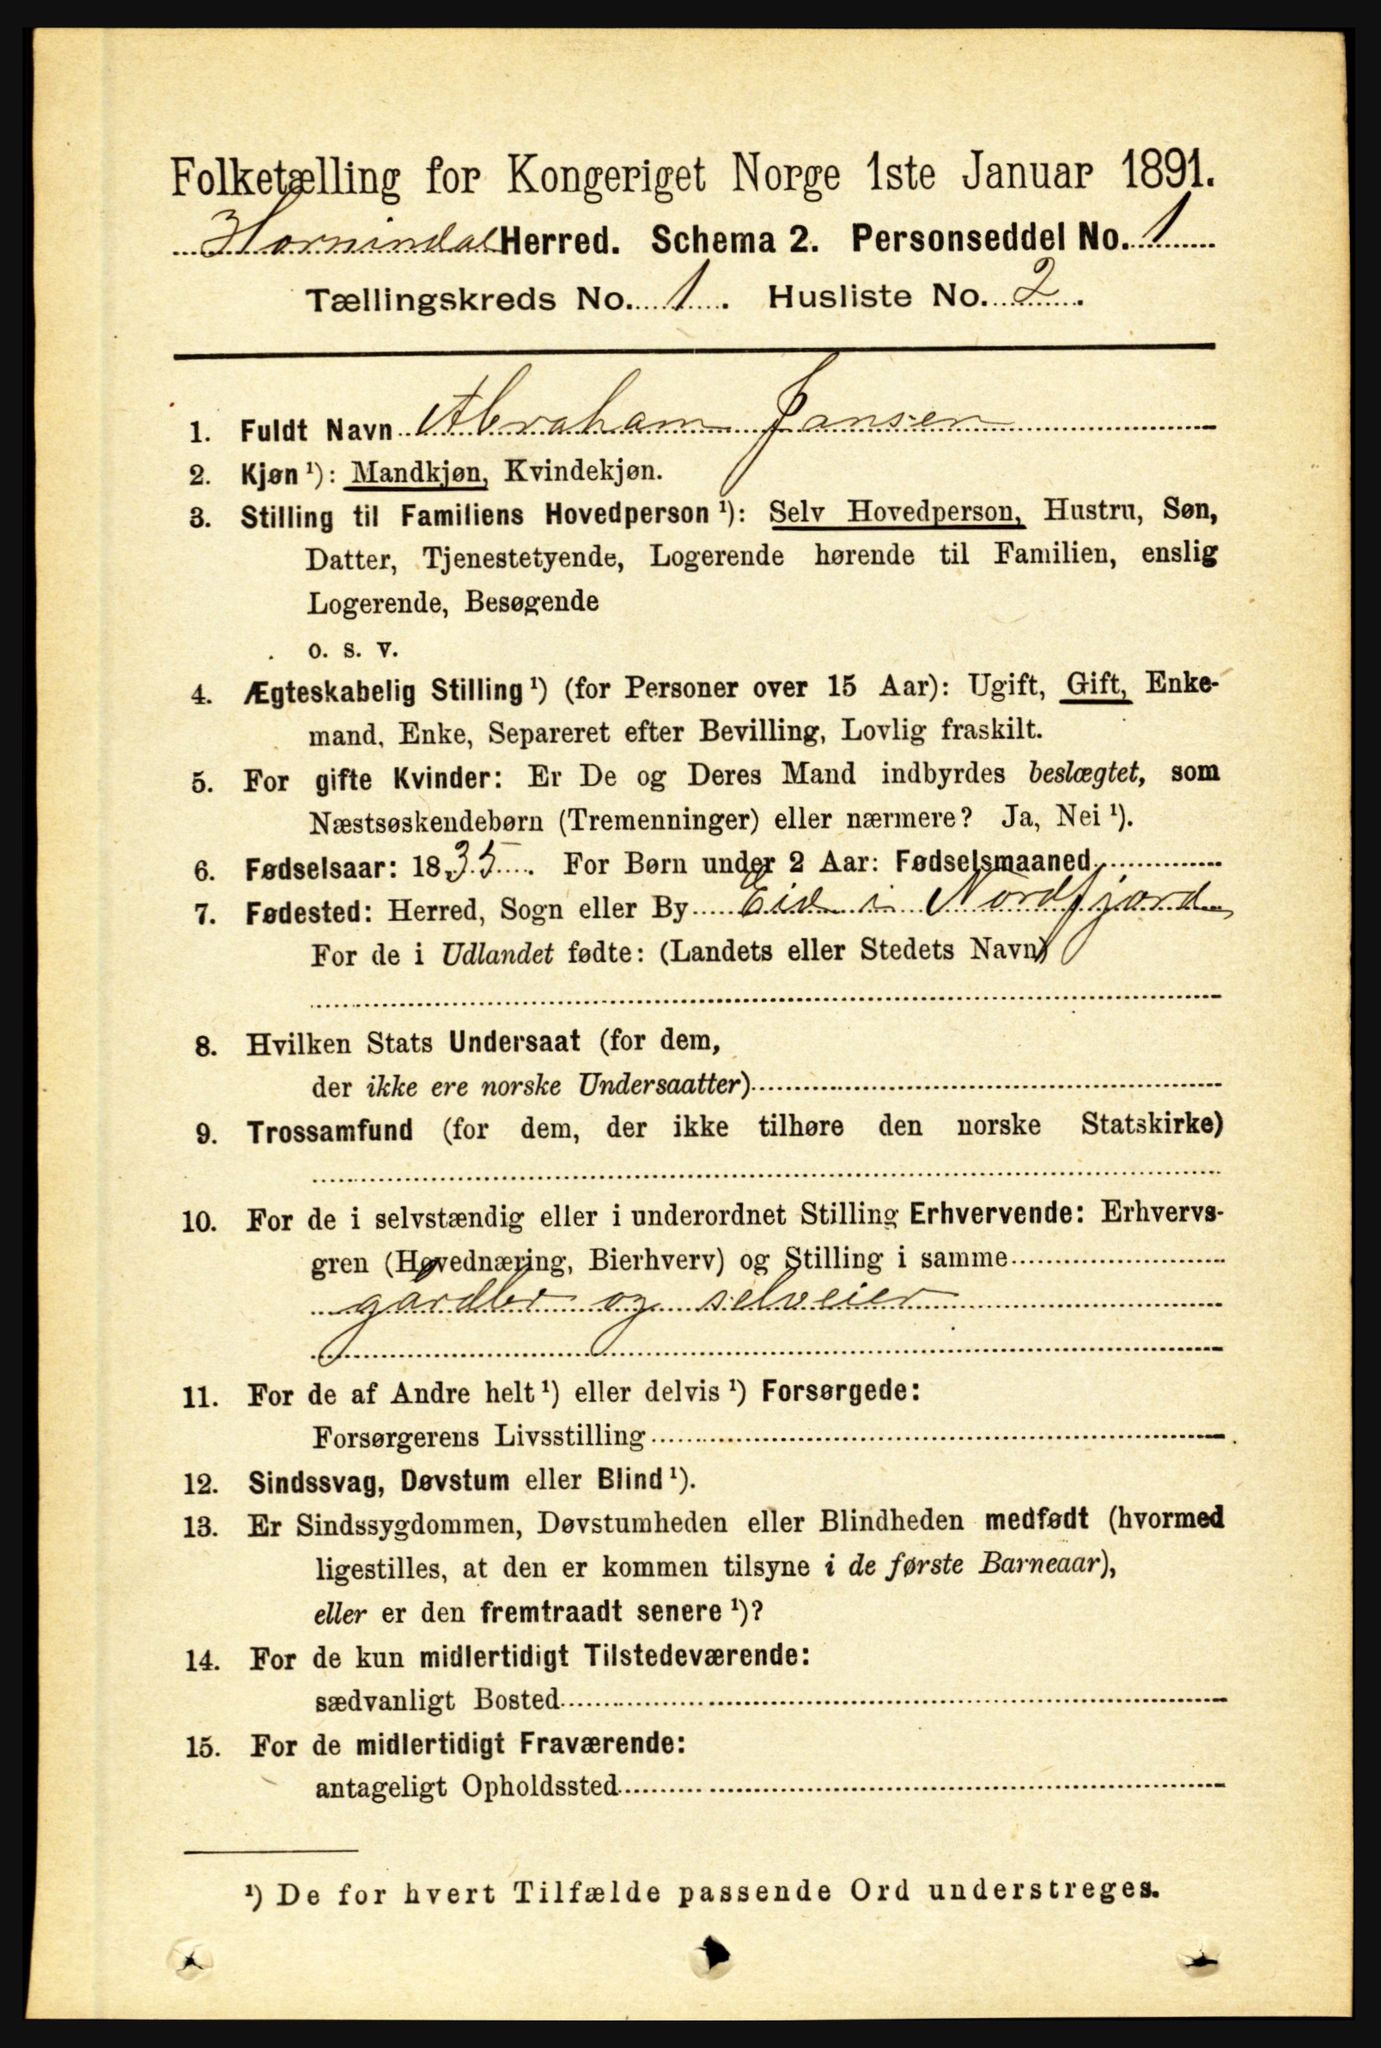 Folketælling for Kongeriget Norge 1ste Januar 1891.
Hornindal Herred. Schema 2. Personseddel No. 1
Tællingskreds No. 1. Husliste No. 2.
1. Fuldt Navn Abraham Jansen
2. Kjøn ¹): Mandkjøn, Kvindekjøn.
3. Stilling til Familiens Hovedperson ¹): Selv Hovedperson, Hustru, Søn,
Datter, Tjenestetyende, Logerende hørende til Familien, enslig
Logerende, Besøgende
o. s. v.
4. Ægteskabelig Stilling ¹) (for Personer over 15 Aar): Ugift, Gift, Enke-
mand, Enke, Separeret efter Bevilling, Lovlig fraskilt.
5. For gifte Kvinder: Er De og Deres Mand indbyrdes beslægtet, som
Næstsøskendebørn (Tremenninger) eller nærmere? Ja, Nei ¹).
6. Fødselsaar: 1835. For Børn under 2 Aar: Fødselsmaaned
7. Fødested: Herred, Sogn eller By Eid i Nordfjord
For de i Udlandet fødte: (Landets eller Stedets Navn)
8. Hvilken Stats Undersaat (for dem,
der ikke ere norske Undersaatter)
9. Trossamfund (for dem, der ikke tilhøre den norske Statskirke)
10. For de i selvstændig eller i underordnet Stilling Erhvervende: Erhvervs-
gren (Hovednæring, Bierhverv) og Stilling i samme
gårdbr og selveier
11. For de af Andre helt ¹) eller delvis ¹) Forsørgede:
Forsørgerens Livsstilling
12. Sindssvag, Døvstum eller Blind ¹).
13. Er Sindssygdommen, Døvstumheden eller Blindheden medfødt (hvormed
ligestilles, at den er kommen tilsyne i de første Barneaar),
eller er den fremtraadt senere ¹)?
14. For de kun midlertidigt Tilstedeværende:
sædvanligt Bosted
15. For de midlertidigt Fraværende:
antageligt Opholdssted
¹) De for hvert Tilfælde passende Ord understreges.